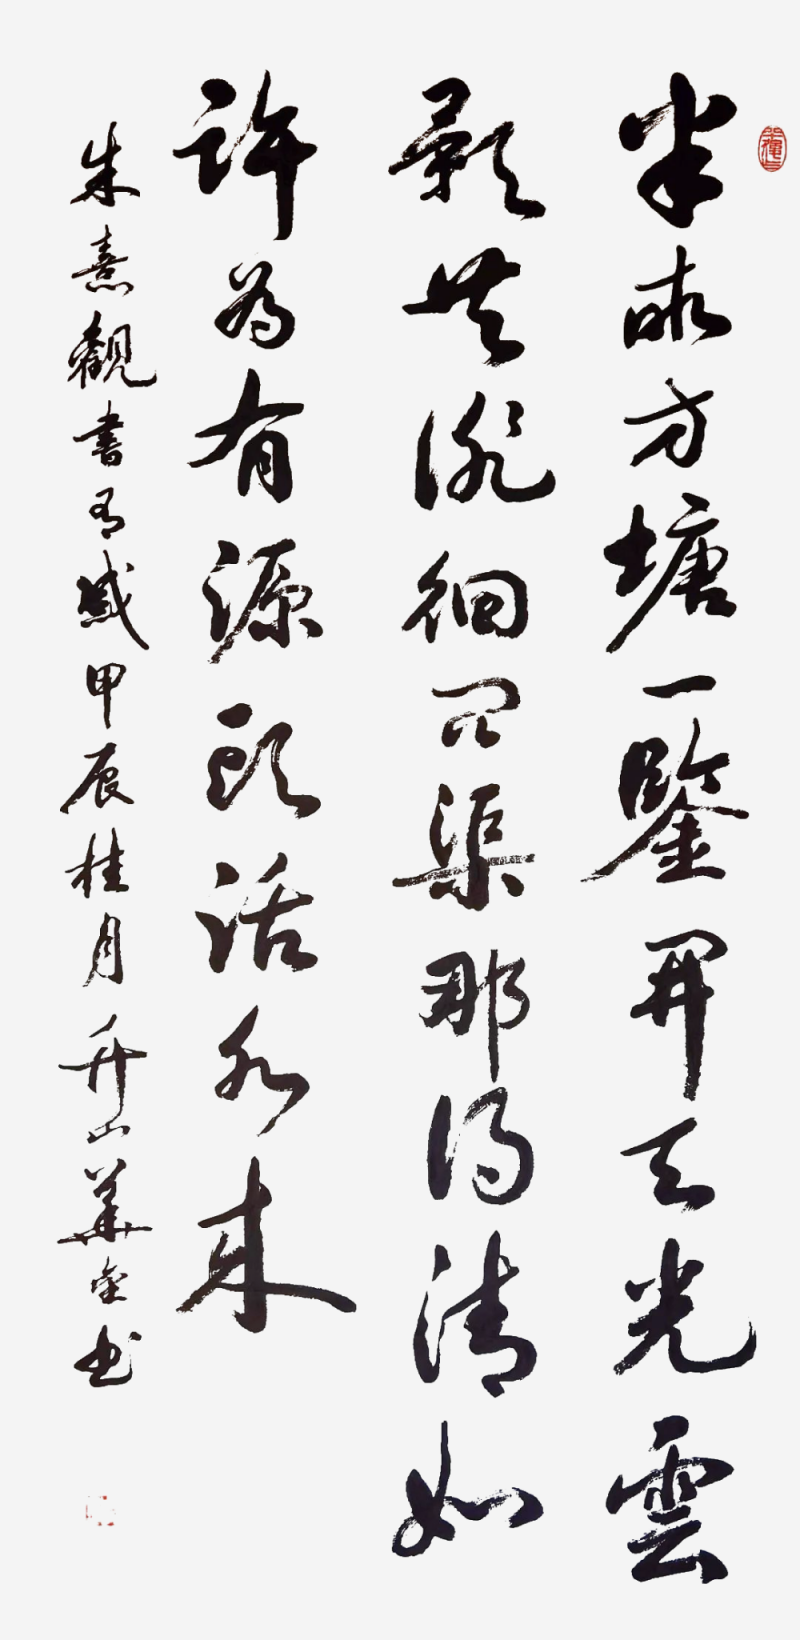 半畝方塘一鑒開天光雲
影共徘徊問渠那得清如
許為有源頭活水來
朱熹觀書有感甲辰桂月舟山華书